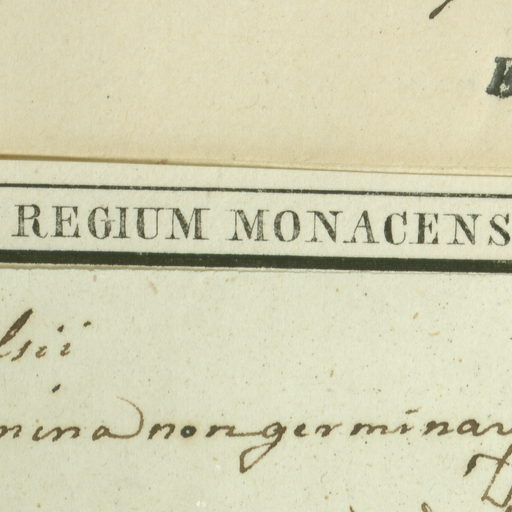 REGIUM MONACENS
lsii
mina non germinar